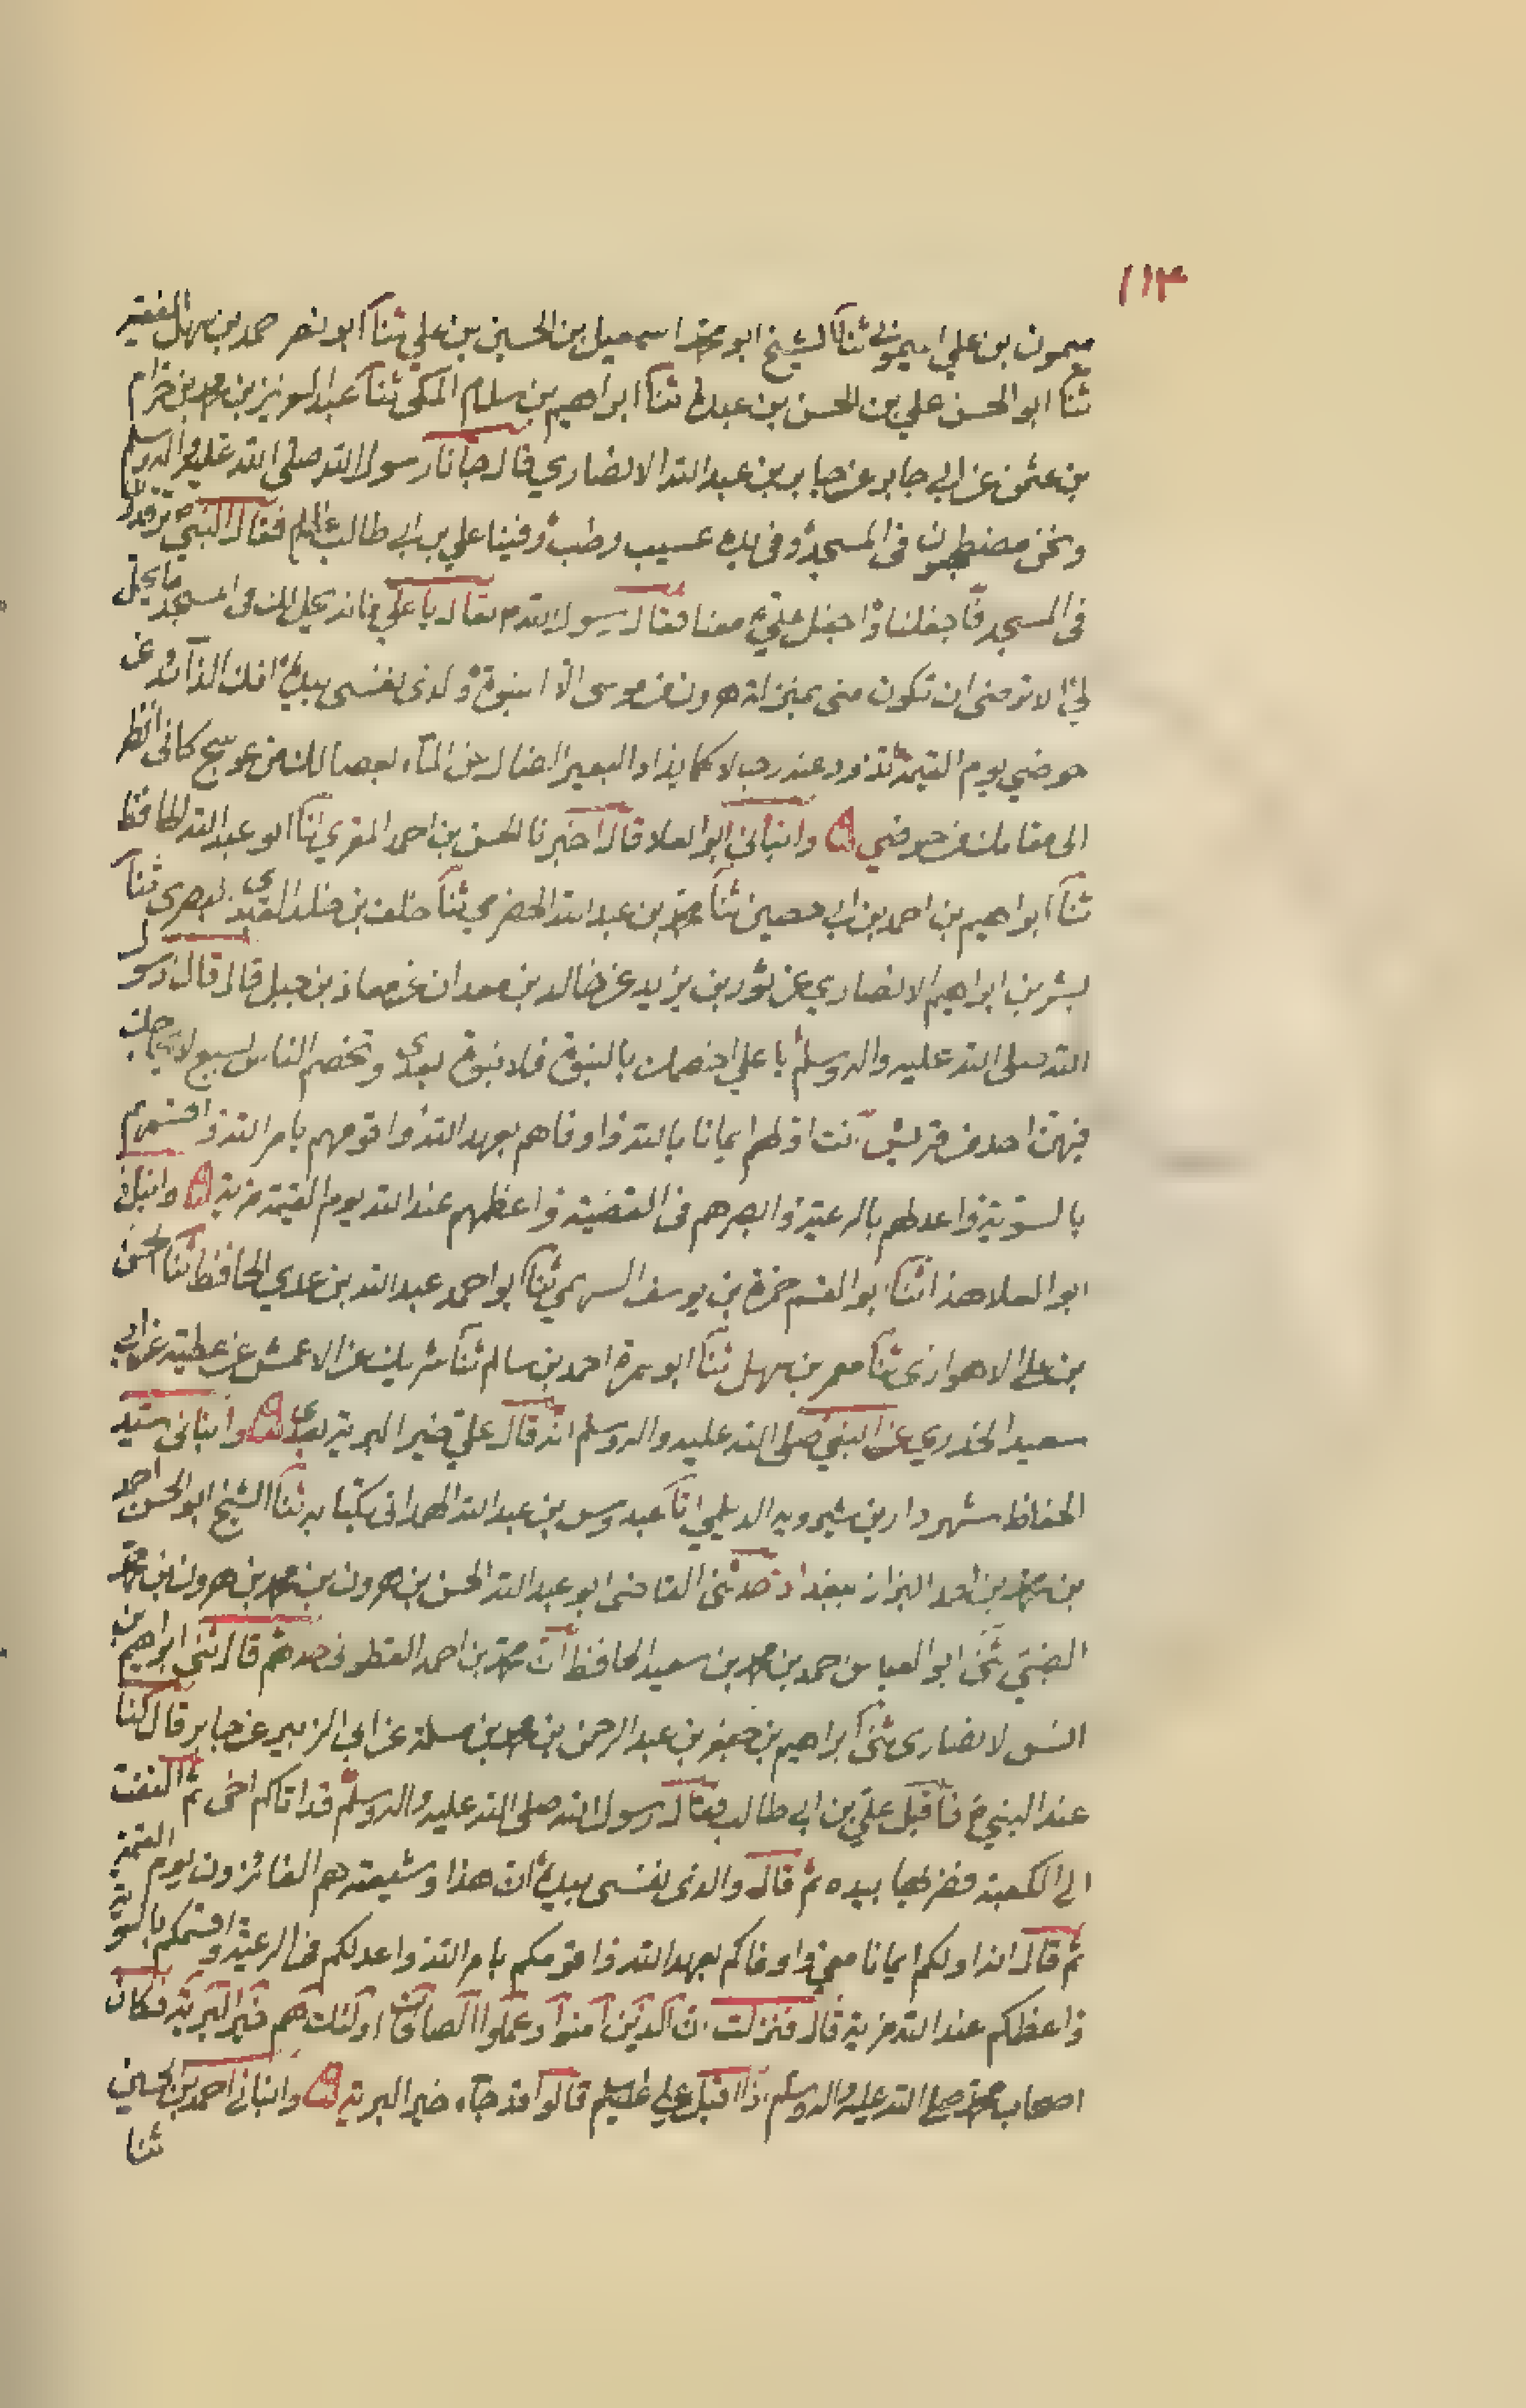 ١١٣
ميمون بن علي الميموني ثنا الشيخ ابو محمد اسمعيل بن الحسين بن علي ثنا ابو نصر احمد بن سهل الفقيه
ثنا ابو الحسن علي بن الحسن بن عبدة ثنا ابراهيم بن سلام المكي ثنا عبد العزيز بن محمد بن حرام
بن عثمن عن ابي جابر عن جابر بن عبد الله الانصاري قال جانا رسول الله صلى الله عليه واله وسلم
ونحن مضطجعون في المسجد وفي يده عسيب رطب وفينا علي بن ابي طالب عليه السلم فقال النبي ترقدون
في المسجد فاجفلنا واجفل علي معنا فقال رسول الله م تعال يا علي فانه يحل لك في المسجد ما يحل
لي الا ترضى ان تكون مني بمنزلة هرون من موسى الا النبوة والذى نفسى بيده انك الذائد عن
حوضي يوم القيمة تذود عنه رجالا كما يذاد البعير الضال عن الماء بعصا لك من عوسج كانى انظر
الى مقامك من حوضي وانباني ابو العلا قال اخبرنا الحسن بن احمد المقري انا ابو عبد الله الحافظ
ثنا ابراهيم بن احمد بن ابي حصين ثنا محمد بن عبد الله الحضرمي ثنا خلف بن خالد العبدي البصري ثنا
بشر بن ابراهيم الانصاري عن ثور بن يزيد عن خالد بن معدان عن معاذ بن جبل قال قال رسول
الله صلى الله عليه واله وسلم يا علي اخصمك بالنبوة فلا نبوة بعدى وتخصم الناس بسبع لا يحاجك
فيهن احد من قريش انت اولهم ايمانا بالله واوفاهم بعهد الله واقومهم بامر الله واقسمهم
بالسوية واعدلهم بالرعية وابصرهم في القضية واعظمهم عند الله يوم القيمة مزية وانباني
ابو العلا هذا ثنا ابو القسم حمزة بن يوسف السهمي ثنا ابو احمد عبد الله بن عدي الحافظ ثنا الحسن
بن علي الاهوازي ثنا معمر بن سهل ثنا ابو سمرة احمد بن سالم ثنا شريك عن الاعمش عن عطية عن ابي
سعيد الخدري عن النبي صلى الله عليه واله وسلم انه قال علي خير البرية بعدى وانباني سيد
الحفاظ شهردار بن شيرويه الديلمي انا عبدوس بن عبد الله الهمداني بكتابه ثنا الشيخ ابو الحسن احمد
بن محمد بن احمد البزاز ببغداد حدثنى القاضى ابو عبد الله الحسن بن هرون بن محمد بن هرون بن محمد
الضبي ثنى ابو العباس احمد بن محمد بن سعيد الحافظ ان محمد بن احمد القطواني حدثهم قال ثنى ابراهيم بن
انس الانصارى ثنى ابراهيم بن جعفر بن عبد الرحمن بن محمد بن مسلمة عن ابي الزبير عن جابر قال كنا
عند النبي م فاقبل علي بن ابي طالب فقال رسول الله صلى الله عليه واله وسلم قد اتاكم اخى ثم التفت
الى الكعبة فضربها بيده ثم قال والذى نفسى بيده ان هذا وشيعته هم الفائزون يوم القيمة
ثم قال انه اولكم ايمانا معي واوفاكم بعهد الله واقومكم بامر الله واعدلكم في الرعية واقسمكم بالسوية
واعظمكم عند الله مزية قال فنزلت ان الذين آمنوا وعملوا الصالحات اولئك هم خير البرية فكان
اصحاب محمد صلى الله عليه واله وسلم اذا اقبل علي عليه السلم قالوا قد جاء خير البرية وانباني احمد بن الحسين
ثنا